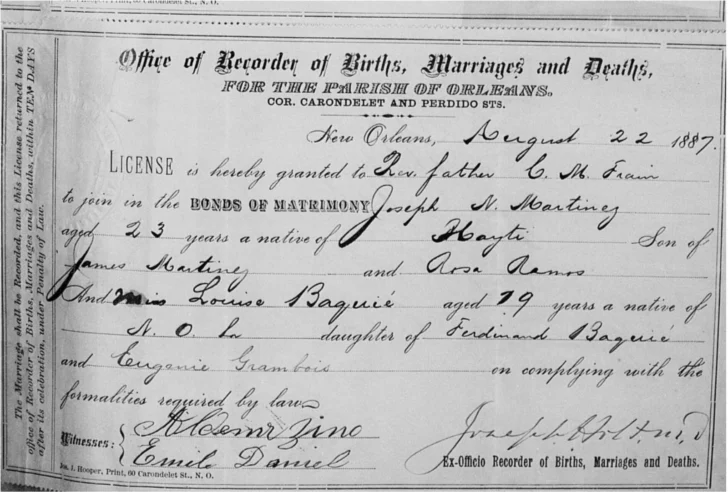 Hooper, Print, 60 Carondelet St., N. O.
Office of Recorder of Births, Marriages and Deaths,
FOR THE PARISH OF ORLEANS,
COR. CARONDELET AND PERDIDO STS.
New Orleans, August 22 1887.
LICENSE is hereby granted to Rev. father C. M.
to join in the BONDS OF MATRIMONY Joseph N. Martinez
aged 23 years a native of Hayti Son of
James Martinez and Rosa Ramos
And Miss Louise Baquié aged 19 years a native of
N. O. La daughter of Ferdinand Baquié
and Eugenie Grambois on complying with the
formalities required by law
Witnesses:
Emile Daniel
Joseph Holt M.D
Ex-Officio Recorder of Births, Marriages and Deaths.
Jos. I. Hooper, Print, 60 Carondelet St., N. O.
The Marriage shall be Recorded, and this License returned to the
office of Recorder of Births, Marriages and Deaths, within TEN DAYS
after its celebration, under Penalty of Law.